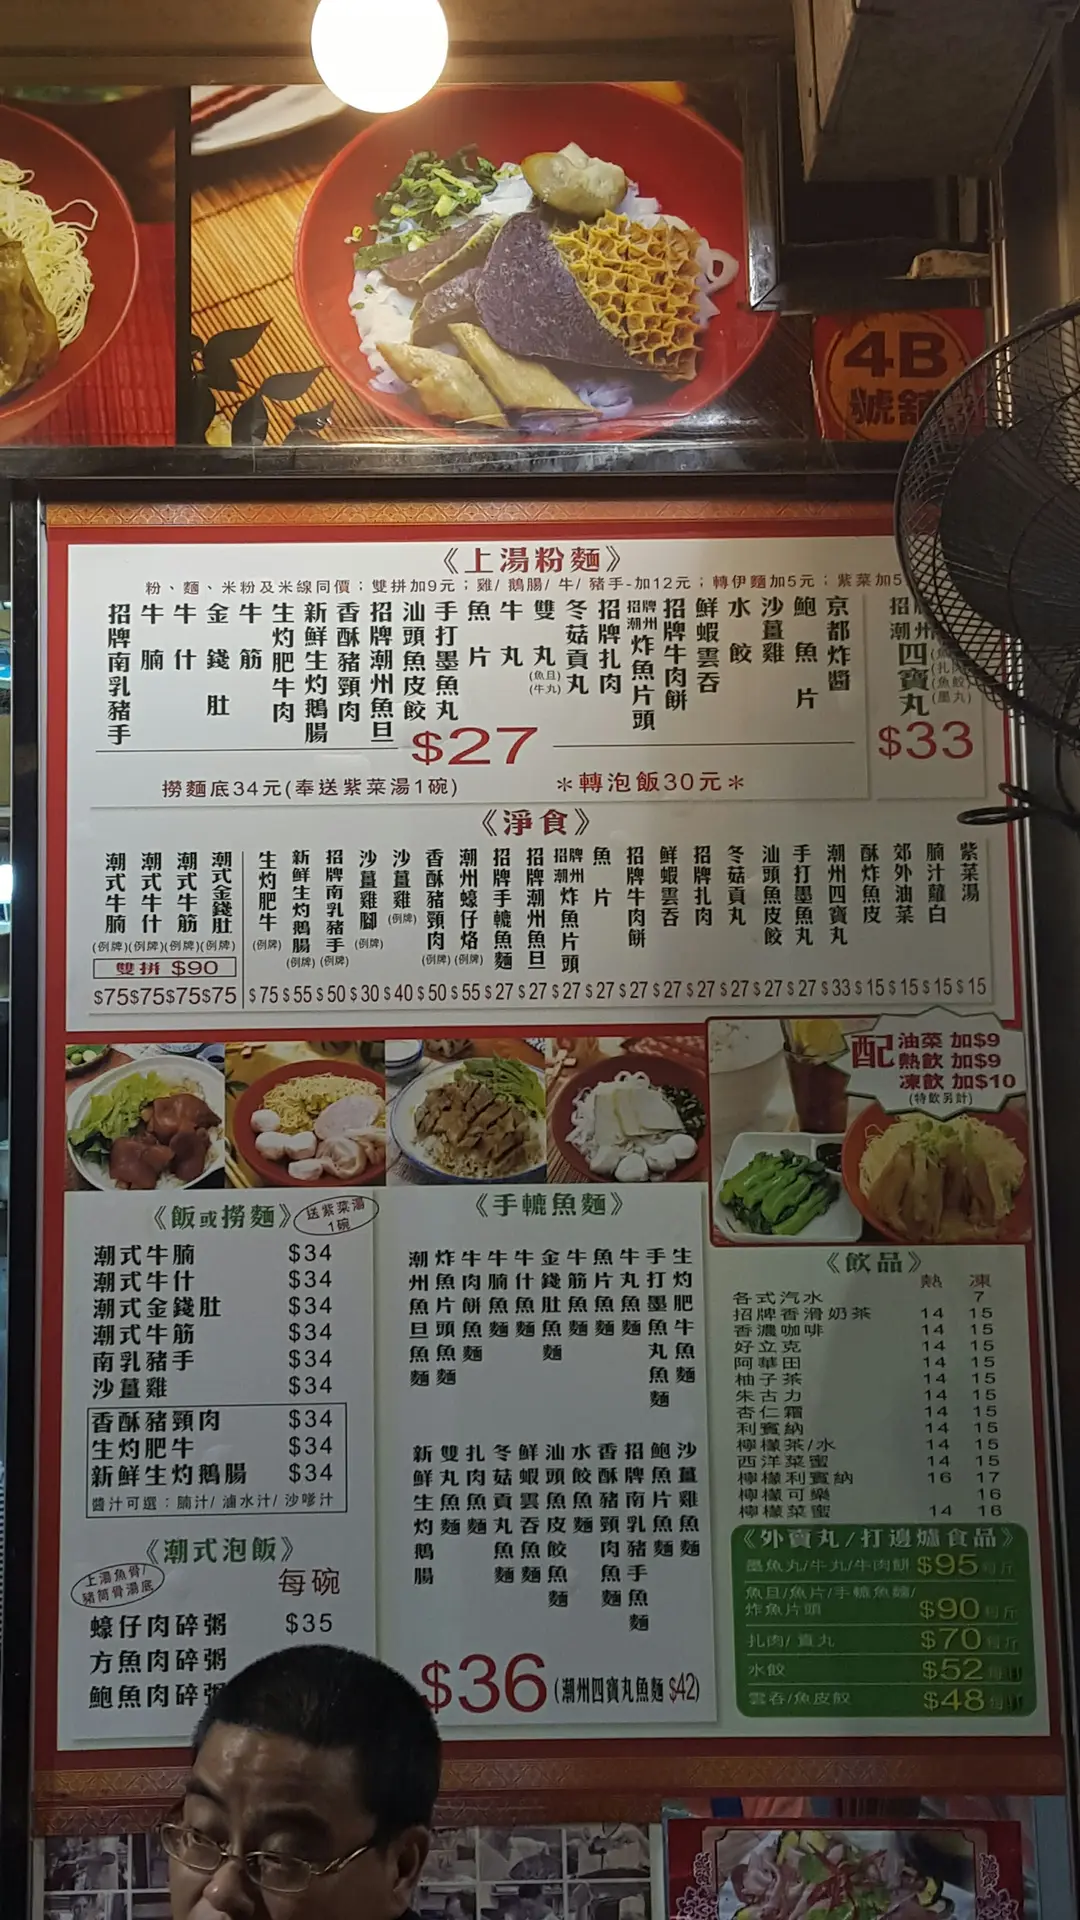 4B
號舖
《上湯粉麵》
粉、麵、米粉及米線同價；雙拼加9元；雞/鵝腸/牛/豬手-加12元；轉伊麵加5元；紫菜加5
招牌南乳豬手
牛腩
牛什
金錢肚
牛筋
生灼肥牛肉
新鮮生灼鵝腸
香酥豬頸肉
招牌潮州魚旦
汕頭魚皮餃
手打墨魚丸
魚片
牛丸
雙丸(魚旦)(牛丸)
冬菇貢丸
招牌扎肉
招牌潮州炸魚片頭
招牌牛肉餅
鮮蝦雲吞
水餃
沙薑雞
鮑魚片
京都炸醬
$27
潮州四寶丸
$33
撈麵底34元(奉送紫菜湯1碗)
＊轉泡飯30元＊
《淨食》
潮式牛腩(例牌) $75
潮式牛什(例牌) $75
潮式牛筋(例牌) $75
潮式金錢肚(例牌) $75
雙拼 $90
生灼肥牛(例牌) $75
新鮮生灼鵝腸(例牌) $55
招牌南乳豬手(例牌) $50
沙薑雞腳(例牌) $30
沙薑雞(例牌) $40
香酥豬頸肉(例牌) $50
潮州蠔仔烙(例牌) $55
招牌手轆魚麵 $27
招牌潮州魚旦 $27
招牌潮州炸魚片頭 $27
魚片 $27
招牌牛肉餅 $27
鮮蝦雲吞 $27
招牌扎肉 $27
冬菇貢丸 $27
汕頭魚皮餃 $27
手打墨魚丸 $27
潮州四寶丸 $33
酥炸魚皮 $15
郊外油菜 $15
腩汁蘿白 $15
紫菜湯 $15
配
油菜 加$9
熱飲 加$9
凍飲 加$10
(特飲另計)
《飯或撈麵》
送紫菜湯
1碗
潮式牛腩 $34
潮式牛什 $34
潮式金錢肚 $34
潮式牛筋 $34
南乳豬手 $34
沙薑雞 $34
香酥豬頸肉 $34
生灼肥牛 $34
新鮮生灼鵝腸 $34
醬汁可選：腩汁/滷水汁/沙嗲汁
《潮式泡飯》
上湯魚骨/
豬筒骨湯底
每碗
蠔仔肉碎粥 $35
方魚肉碎粥
鮑魚肉碎粥
《手轆魚麵》
潮州魚旦魚麵
炸魚片頭魚麵
牛肉餅魚麵
牛腩魚麵
牛什魚麵
金錢肚魚麵
牛筋魚麵
魚片魚麵
牛丸魚麵
手打墨魚丸魚麵
生灼肥牛魚麵
新鮮生灼鵝腸
雙丸魚麵
扎肉魚麵
冬菇貢丸魚麵
鮮蝦雲吞魚麵
汕頭魚皮餃魚麵
水餃魚麵
香酥豬頸肉魚麵
招牌南乳豬手魚麵
鮑魚片魚麵
沙薑雞魚麵
$36 (潮州四寶丸魚麵 $42)
《飲品》
熱 凍
各式汽水 7
招牌香滑奶茶 14 15
香濃咖啡 14 15
好立克 14 15
阿華田 14 15
柚子茶 14 15
朱古力 14 15
杏仁霜 14 15
利賓納 14 15
檸檬茶/水 14 15
西洋菜蜜 14 15
檸檬利賓納 16 17
檸檬可樂 16
檸檬菜蜜 14 16
《外賣丸/打邊爐食品》
墨魚丸/牛丸/牛肉餅 $95
魚旦/魚片/手轆魚麵/
炸魚片頭 $90
扎肉/貢丸 $70
水餃 $52
雲吞/魚皮餃 $48